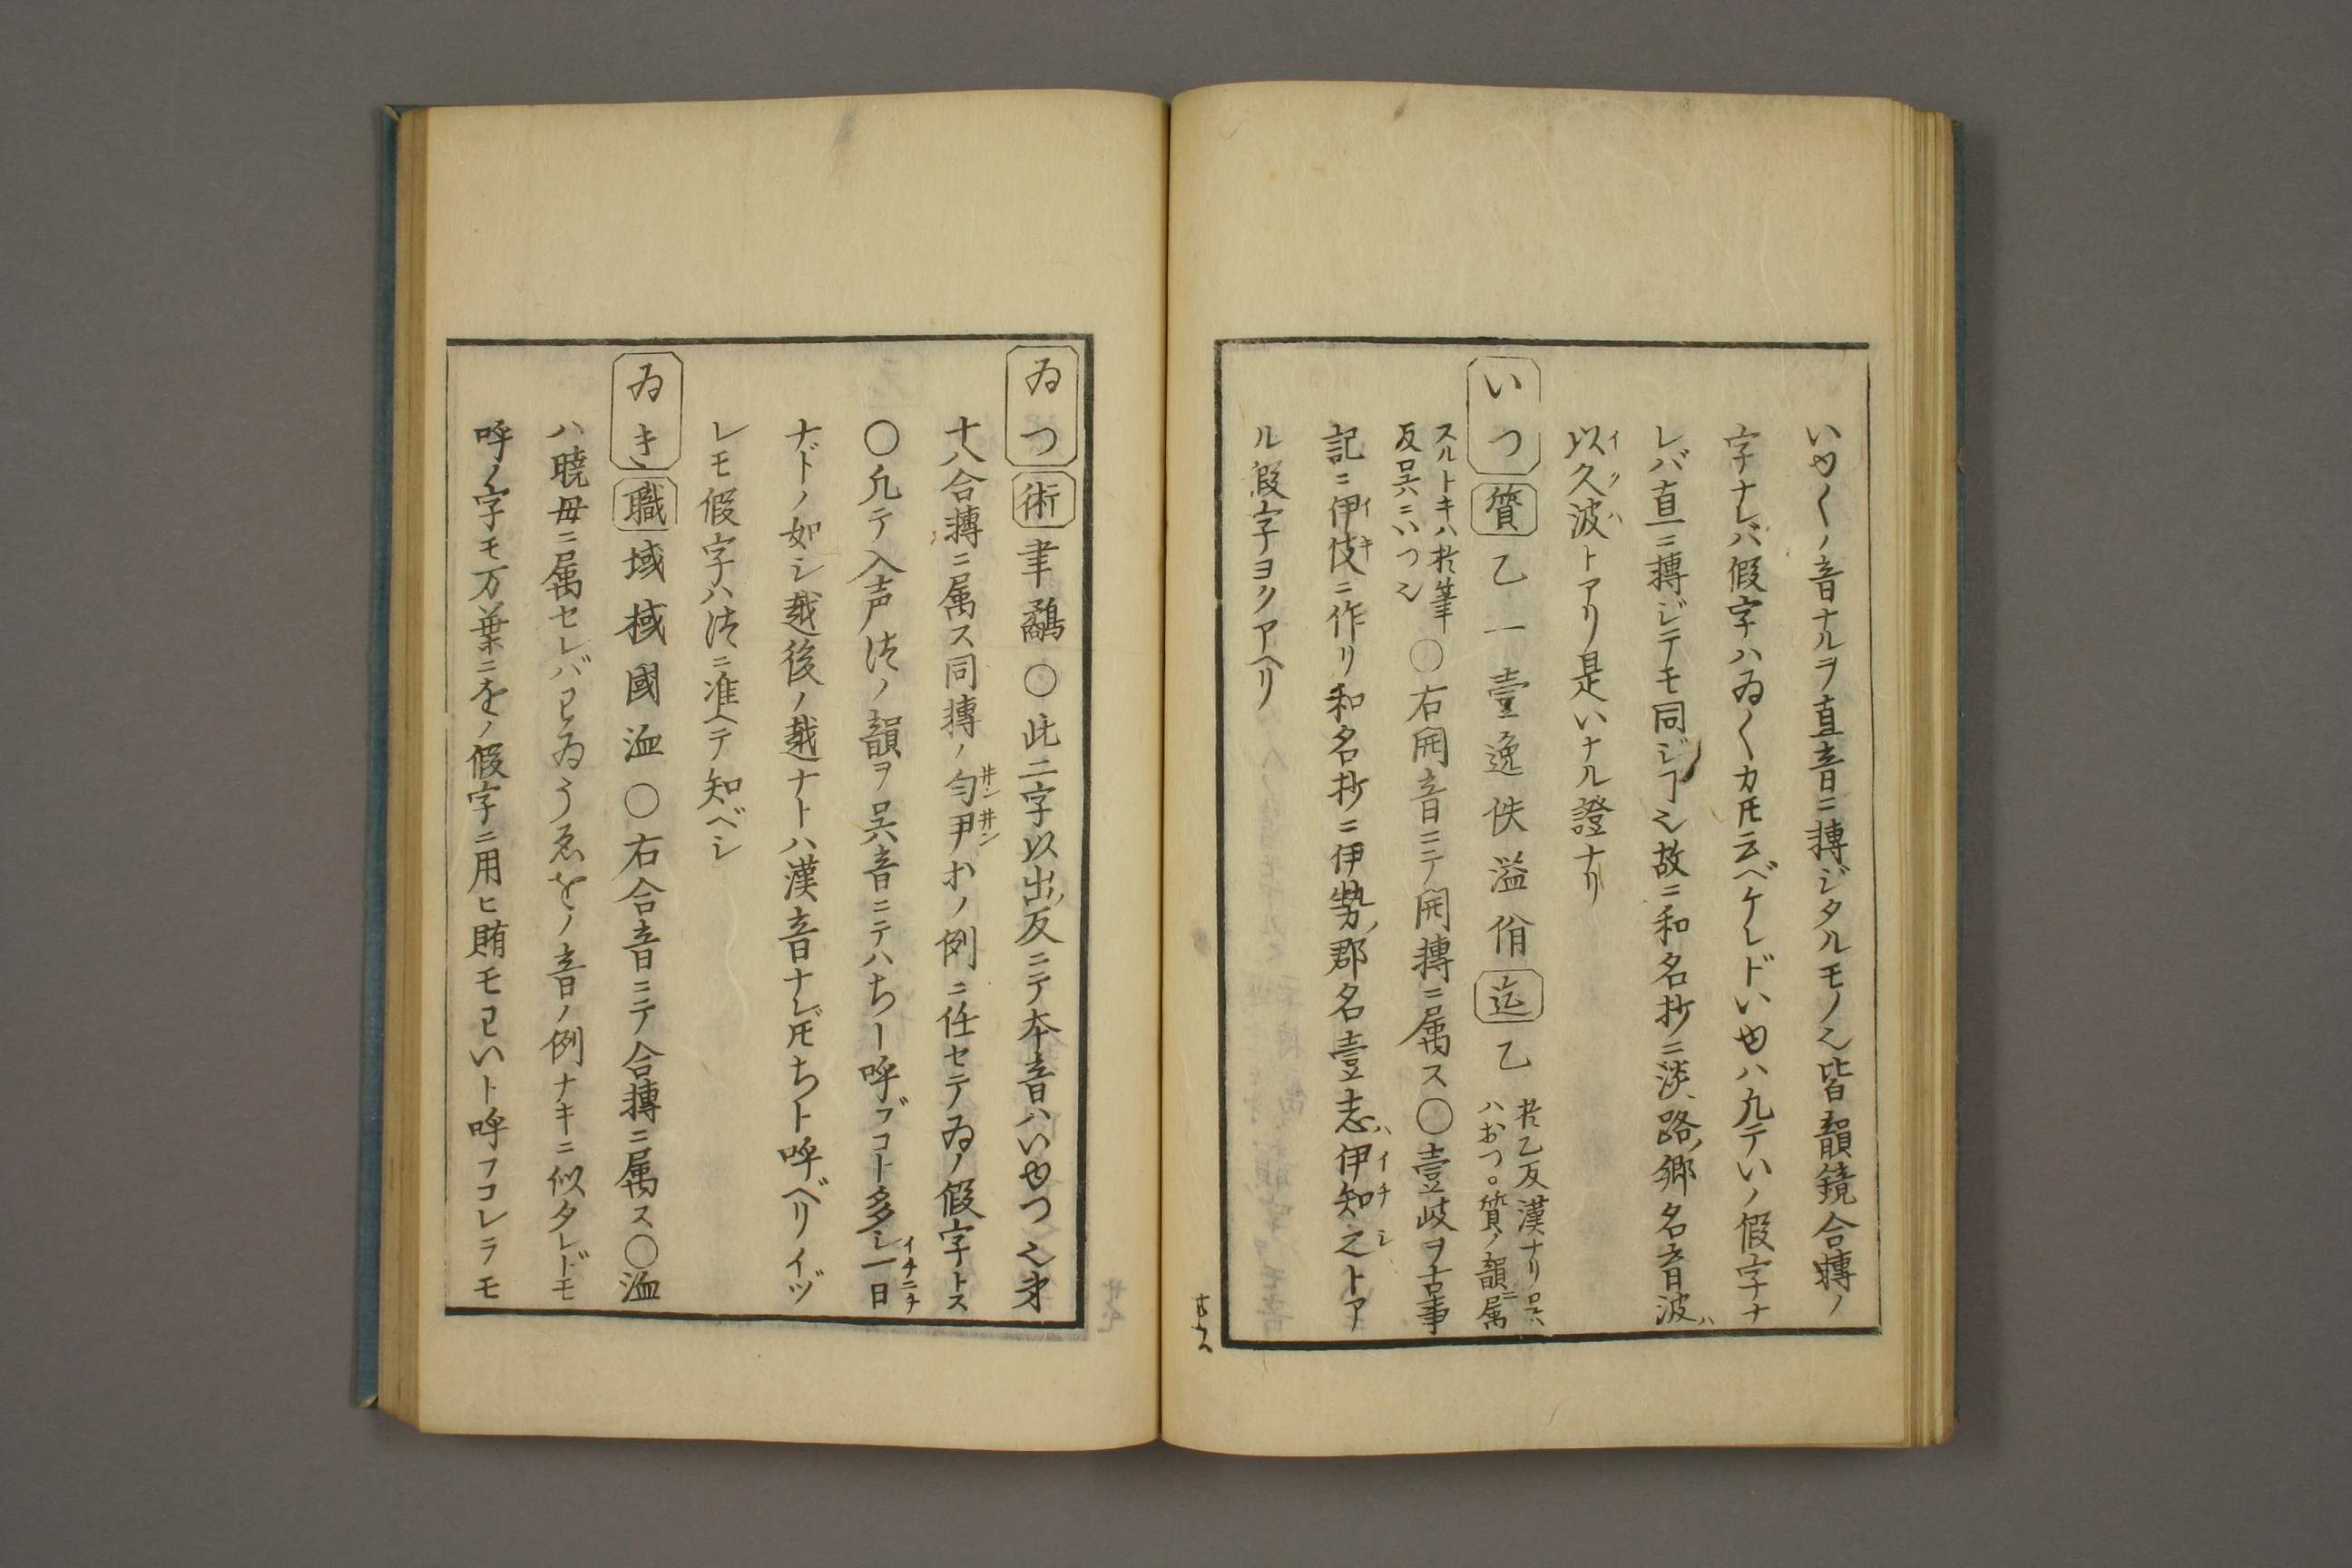 いゆくノ音ナルヲ直音ニ轉ジタルモノ也皆韻鏡合轉ノ
字ナレバ假字ハゐくカトモ云ベケレドいゆハ凡テいノ假字ナ
レバ直ニ轉ジテモ同ジヿ也故ニ和名抄ニ淡路ノ郷名ニ音波ハ
以久波イクハトアリ是いナル證ナリ
いつ 質 乙 一 壹 逸 佚 溢 佾 迄 乙 於乙反漢ナリ呉ハ
ハおつ。質ノ韻ニ属
スルトキハ於筆
反呉ニいつ也 ○右開音ニテ開轉ニ属ス○壹岐ヲ古事
記ニ伊伎イキニ作リ和名抄ニ伊勢ノ郡名壹志ハ伊知之イチシトア
ル假字ヨクアヘリ
ゐつ 術 聿 鷸 ○此二字以出ノ反ニテ本音ハいゆつ也才
十八合轉ニ属ス同轉ノ匀尹ヰンヰンホノ例ニ任セテゐノ假字トス
○凡テ入声つノ韻ヲ呉音ニテハちト呼ブコト多シ一日イチニチ
ナドノ如シ越後ノ越ナトハ漢音ナレドモちト呼ベリイヅ
レモ假字ハつニ准ヘテ知ベシ
ゐき 職 域 棫 國 洫 ○右合音ニテ合轉ニ属ス○洫
ハ曉母ニ属セレバワゐうゑをノ音ノ例ナキニ似タレドモ
呼ノ字モ万葉ニをノ假字ニ用ヒ賄モワいト呼フコレラモ